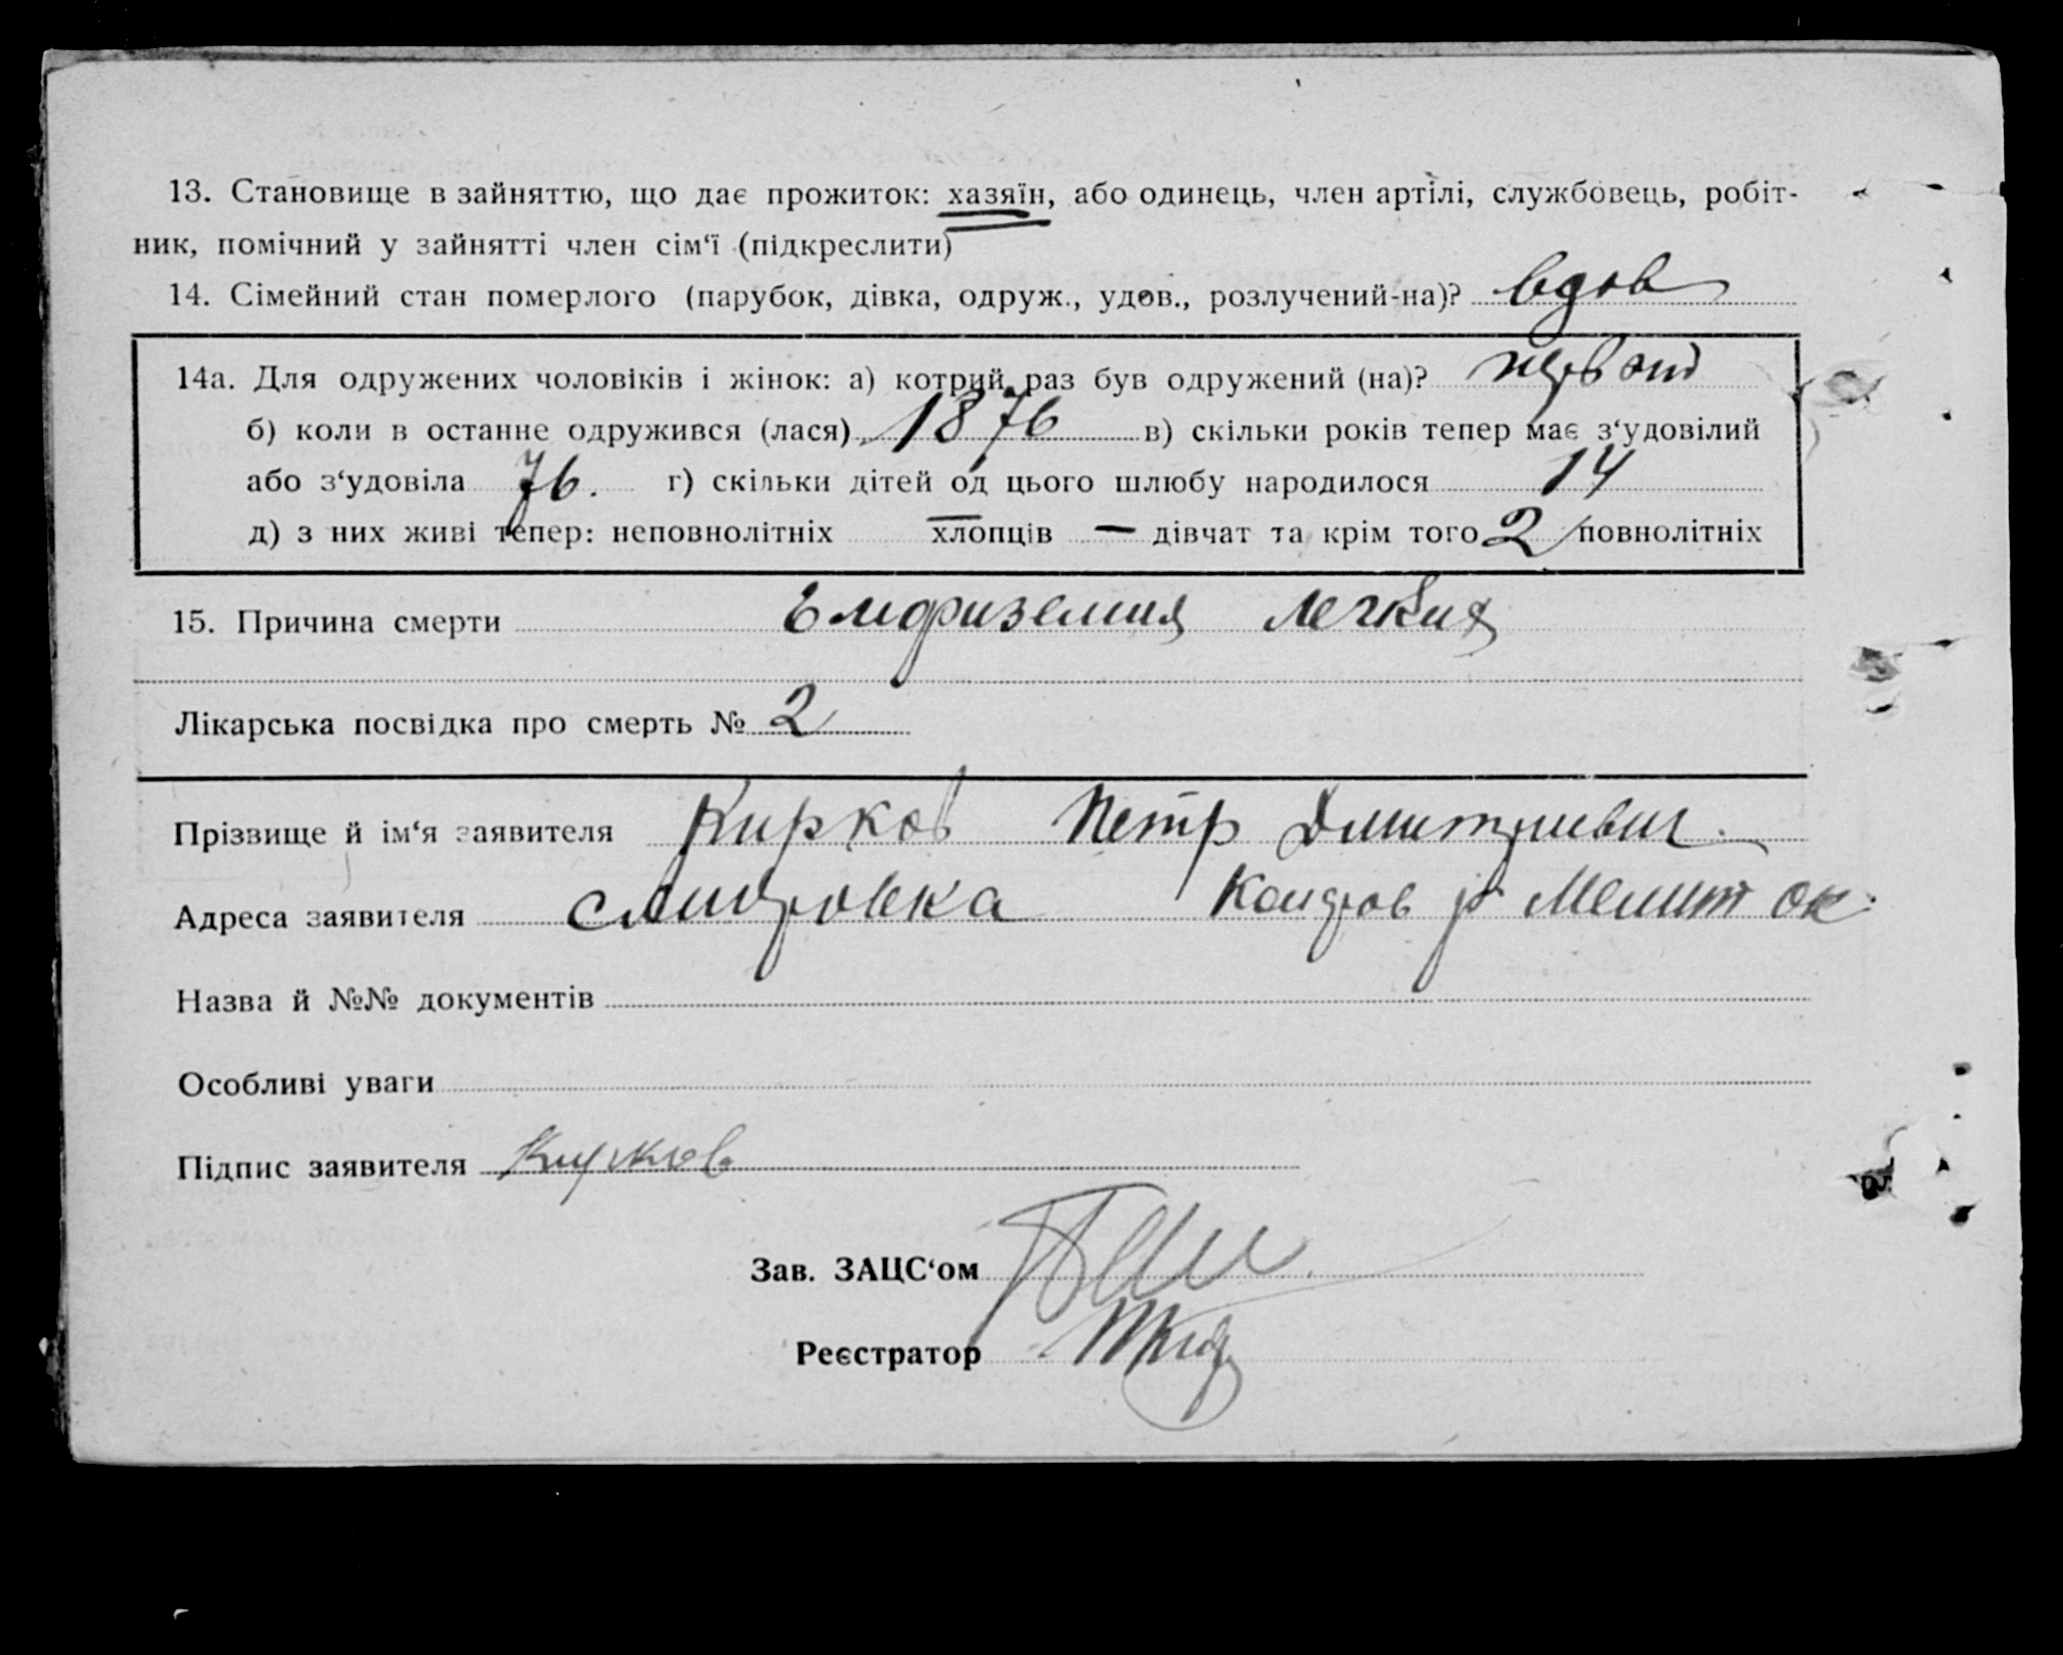 13. Становище в зайняттю, що дає прожиток: хазяїн, або одинець, член артілі, службовець, робіт-
ник, помічний у зайнятті член сім‘ї (підкреслити)
14. Сімейний стан померлого (парубок, дівка, одруж., удов., розлучений-на)? вдов
14а. Для одружених чоловіків і жінок: а) котрий раз був одружений (на)? первый
б) коли в останнє одружився (лася) 1876 в) скільки років тепер має з‘удовілий
або з‘удовіла 76. г) скільки дітей од цього шлюбу народилося 14
д) з них живі тепер: неповнолітніх — хлопців — дівчат та крім того 2 повнолітніх
15. Причина смерти Емфиземия легких
Лікарська посвідка про смерть № 2
Прізвище й ім‘я заявителя Кирков Петр Дмитриевич.
Адреса заявителя Коларов р Мелит ок.
Назва й №№ документів
Особливі уваги
Підпис заявителя Кирков
Зав. ЗАЦС‘ом
Реєстратор